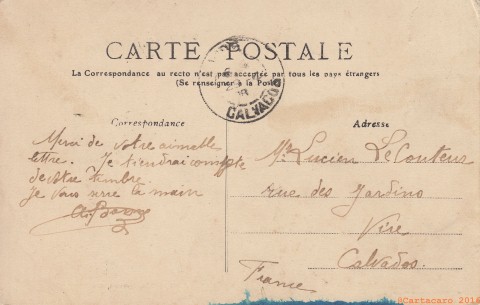 CARTE POSTALE
La Correspondance au recto n'est pas acceptée par tous les pays étrangers
(Se renseigner à la Poste)
CALVADOS
Correspondance
Merci de votre aimable
lettre. Je tiendrai compte
de votre timbre
Je vous serre la main
Adresse
Mr Lucien LeCouteur
rue des Jardins
Vire
Calvados.
France
@Cartacaro 2016